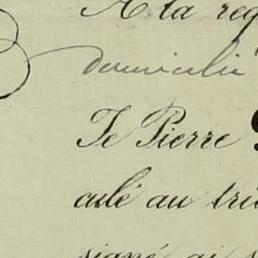 A la req
domicilie
Je Pierre
culé au trib
signé ai s